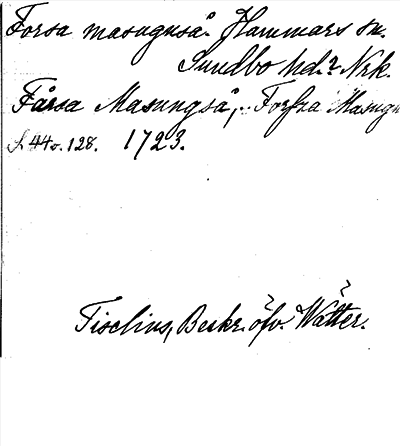 Forsa masugnså. Hammars sn.
Sundbo hd. Nrk.
Fårsa Masungså, Forsza Masugn
s. 44 o. 128. 1723.
Tiselius, Beskr. öfv. Wätter.